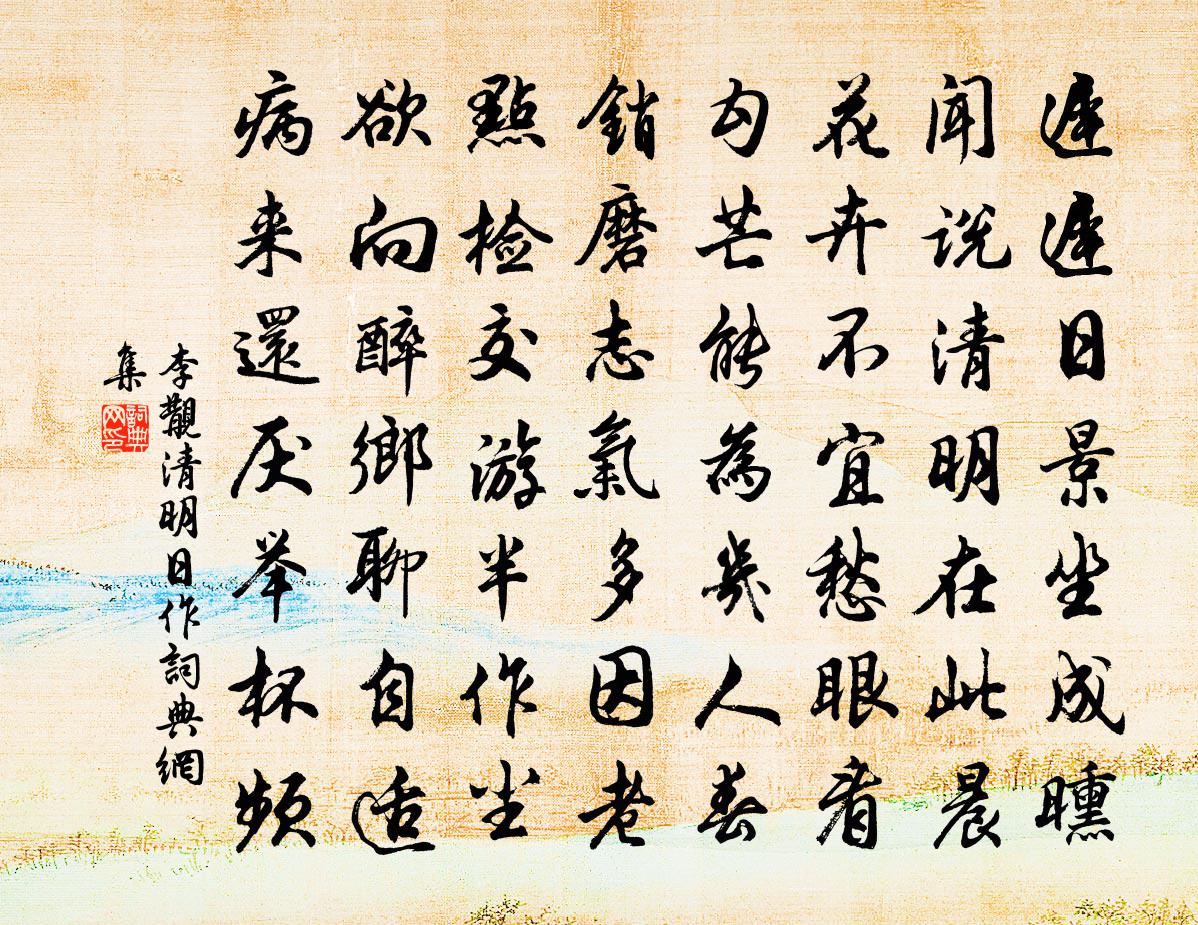 遲遲日景坐成曛
聞説清明在此晨
花卉不宜愁眼看
勾芒能為幾人春
銷磨志氣多因老
點檢交游半作尘
欲向醉鄉聊自适
病来還厌举杯頻
李覯清明日作詞典網
集
詞典
网印